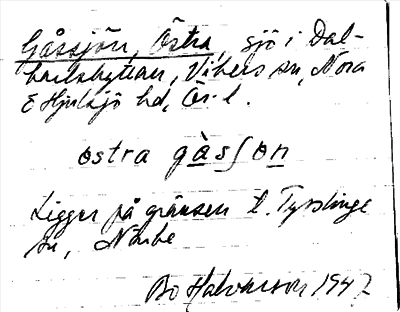 Gåssjön, Östra, sjö i Dal-
karlshyttan, Vikers sn, Nora
& Hjulsjö hd, Ör. l.
östra gåsʃon
Ligger på gränsen t. Tysslinge
sn, Närke
Bo Halvarsson 1947